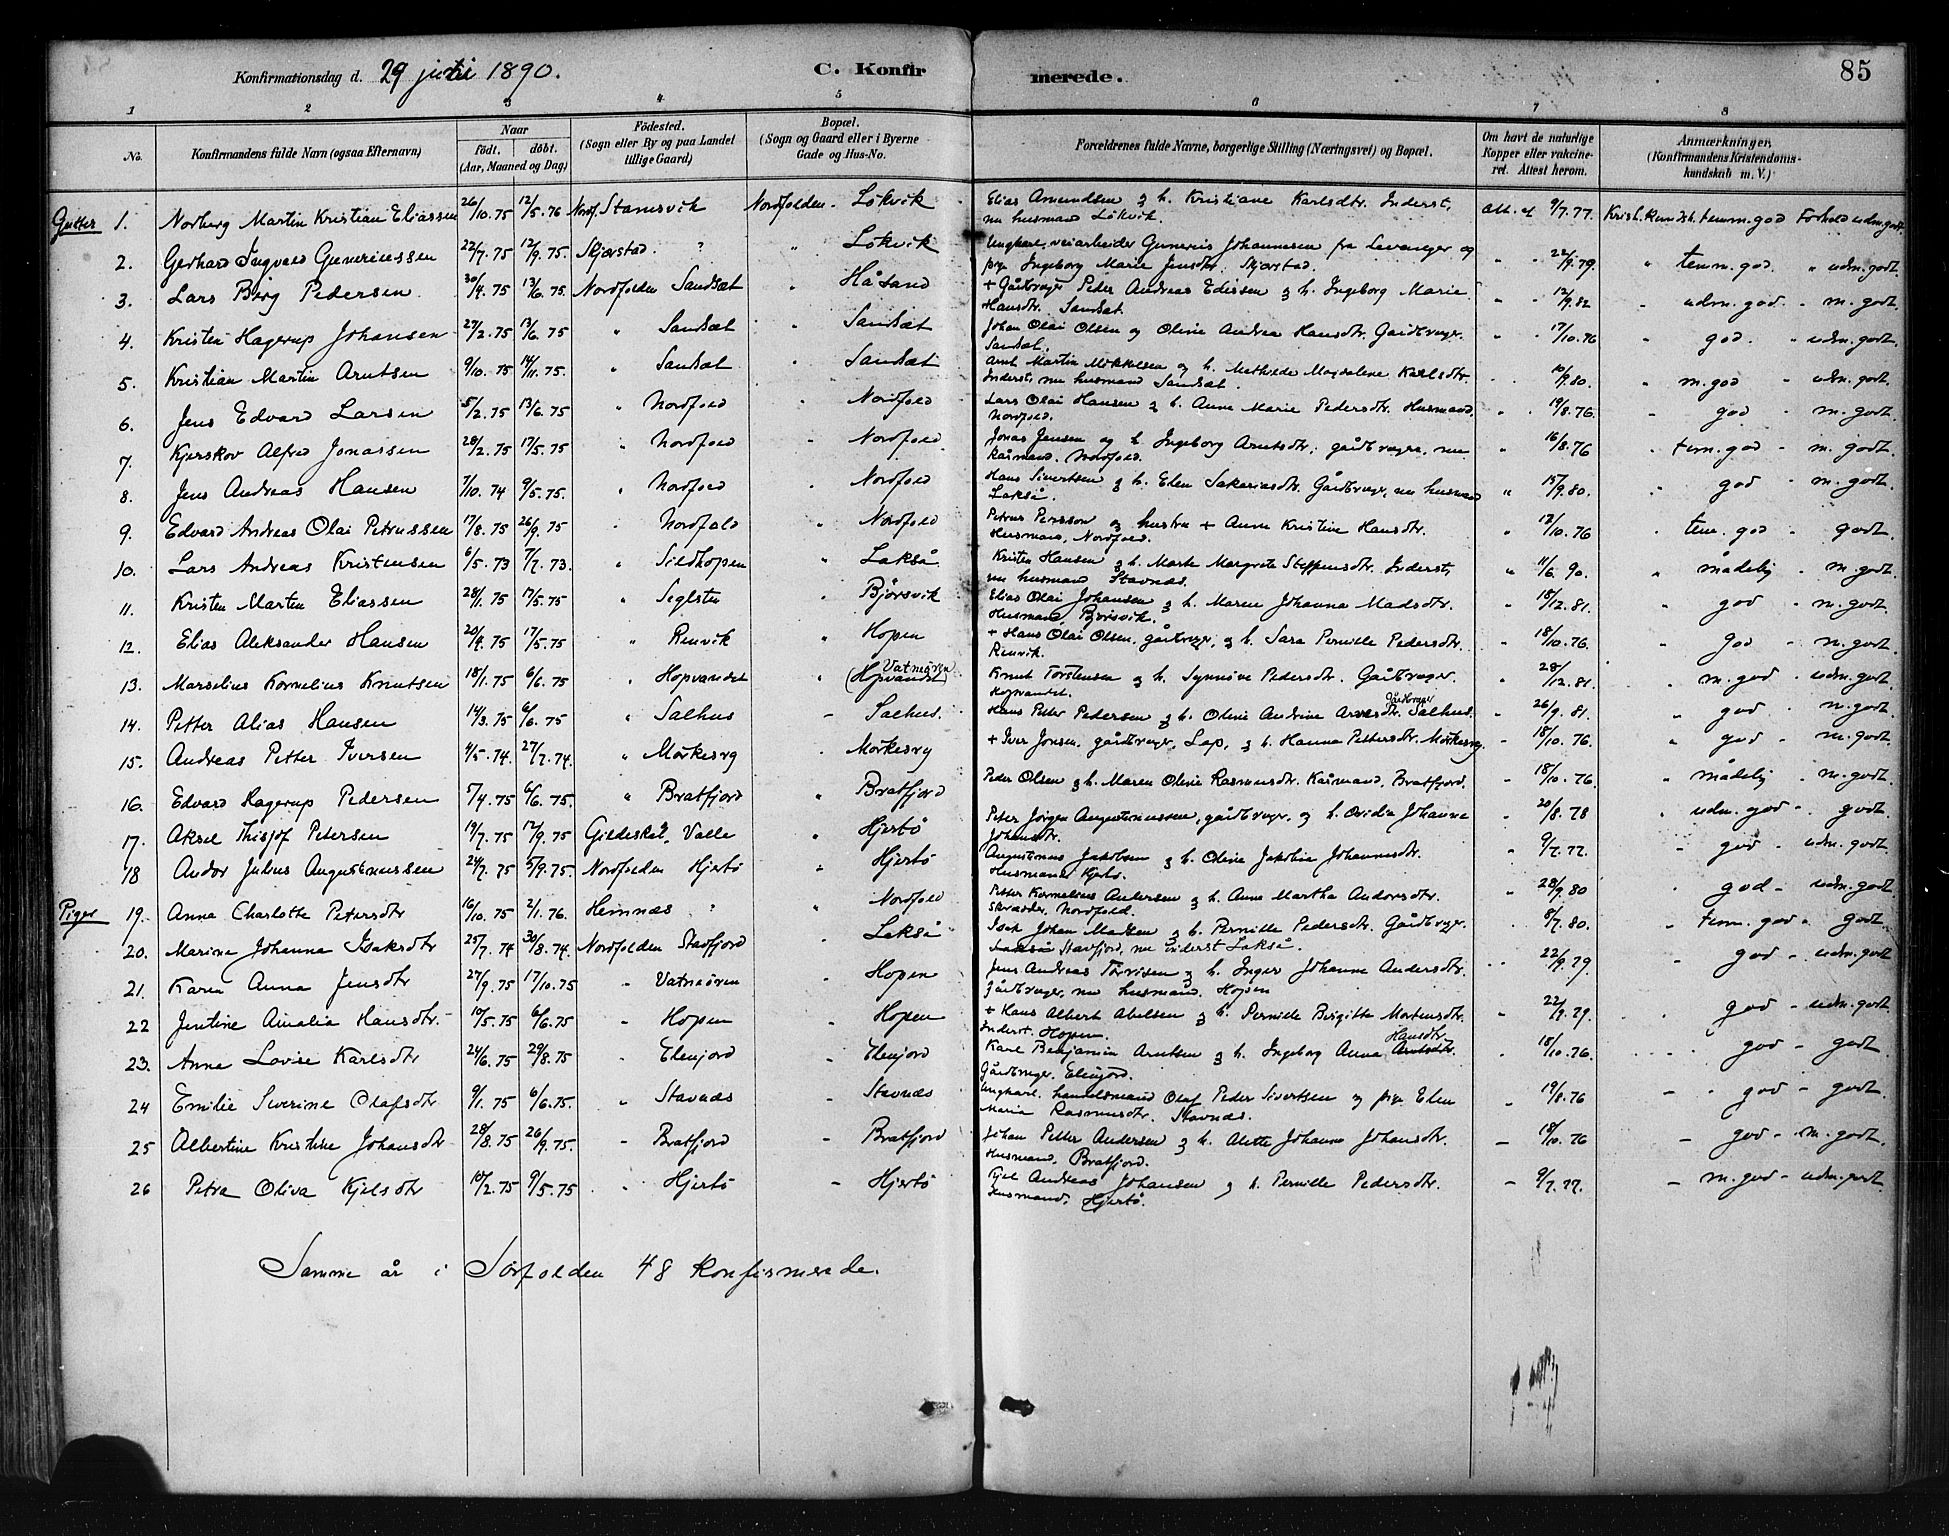 Konfirmationsdag d. 29 juni 1890. C. Konfirmerede. 85
1 2 3 4 5 6 7 8
No. Konfirmandens fulde Navn (ogsaa Efternavn) Naar født. døbt. (Aar, Maaned og Dag) Födested. (Sogn eller By og paa Landet tillige Gaard) Bopæl. (Sogn og Gaard eller i Byerne Gade og Hus-No. Forældrenes fulde Navne, borgerlige Stilling (Næringsvei) og Bopæl. Om havt de naturlige Kopper eller vakcineret. Attest herom. Anmærkninger. (Konfirmandens Kristendomskundskab m. V.)
Gutter 1. Norberg Martin Kristian Eliassen 26/10.75 12/5.76 Nordf. Stamsvik Nordfolden Løkvik Elias Amundsen og h. Kristiane Karlsdtr. Inderst, nu husmand Løkvik. Att. af 9/7.77. Krist. kundsk. temm. god Forhold udm. godt.
2. Gerhard Ingvald Guneriussen 22/7.75 12/9.75. Skjerstad ? " Løkvik Ungkarl, veiarbeider Gunerius Johannesen fra Levanger og pige Ingeborg Marie Jensdtr. Skjerstad. " " 22/9.79. " temm. god. " udm. godt.
3. Lars Berg Pedersen 30/4.75 13/6.75. Nordfolden Sandsæt " Håsand + Gårdbruger Peder Andreas Edissen & h. Ingeborg Marie Hansdtr. Sandsæt. " " 12/9.82 " udm. god. - m. godt.
4. Kristen Hagerup Johansen 27/2.75 13/6.75 " Sandsæt " Sandsæt Johan Olai Olsen og Oline Andrea Hansdtr. Gårdbruger. Sandsæt. " " 17/10.76 " god. " udm. godt.
5. Kristian Martin Arntsen 9/10.75 14/11.75. " Sandsæt " Sandsæt Arnt Martin Mikkelsen og h. Mathilde Magdalene Karlsdtr. Inderst, nu husmand Sandsæt. " " 10/9.80. " m. god " udm. godt.
6. Jens Edvard Larsen 5/2.75 13/6.75 " Nordfold " Nordfold Lars Olai Hansen & h. Anne Marie Pedersdtr. Husmand, Nordfold. " " 19/8.76. " god - m. godt.
7. Kjerskov Alfred Jonassen 28/2.75 17/5.75 " Nordfold - Nordfold Jonas Jensen og h. Ingeborg Arntsdtr. gårdbruger, nu Kårmand. Nordfold. " 16/8.76 " tem. god - m. godt.
8. Jens Andreas Hansen 7/10.74 9/5.75. " Nordfold " Nordfold Hans Sivertsen & h. Elen Sakariasdtr. Gårdbruger, nu husmand Lakså. " 15/9.80. " god - m. godt.
9. Edvard Andreas Olai Petrussen 17/8.75 26/9.75 " Nordfold " Nordfold Petrus Persson og hustru + Anne Kristine Hansdtr. Husmand, Nordfold. " 12/10.76 " tem. god - godt.
10. Lars Andreas Kristensen 6/5.73 7/7.73. " Sildhopen " Lakså. Kristen Hansen & h. Marte Margrete Steffensdtr. Inderst, nu husmand Stavnæs. " 11/6.90. " mådelig - m. godt.
11. Kristen Martin Eliassen 28/1.75 17/5.75 " Seglsten " Bjørsvik Elias Olai Johansen & h. Maren Johanna Madsdtr. Husmand Bjørsvik. " 18/12.81. " god - m. godt.
12. Elias Aleksander Hansen 20/4.75 17/5.75 " Renvik " Hopen + Hans Olai Olsen, gårdbruger, & h. Sara Pernille Pedersdtr. Renvik. " 18/10.76. " god - m. godt.
13. Marselius Kornelius Knutsen 18/1.75 6/6.75 " Hopvandet " Vatneøren (Hopvandet) Knut Torstensen & h. Synnøve Pedersdtr. Gårdbruger. Hopvandet. " 28/12.81. " m. god - udm. godt.
14. Petter Alias Hansen 14/3.75 6/6.75 " Salhus - Salhus. Hans Petter Pedersen & h. Oline Andrine Arnesdtr. Gårdbruger Salhus. " 26/9.81. " god - m. godt.
15. Andreas Petter Iversen 4/5.74. 27/7.74. " Mørkesvg " Mørkesvg + Iver Jonsen, gårdbruger, Lap, & h. Hanna Pettersdtr. Mørkesvg. - 18/10.76. " god - m. godt.
16. Edvard Hagerup Pedersen 7/4.75 6/6.75. " Bratfjord " Bratfjord Peder Olsen & h. Maren Oline Rasmusdtr. Kårmand, Bratfjord. - 18/10.76 " mådelig - m. godt.
17. Aksel Thisjof Petersen 19/7.75 12/9.75 Gildeskål, Valle " Hjertø Peter Jørgen Augustinussen, gårdbruger, & h. Ovidia Johanna Johansdtr. " 20/8.78 " udm. god - godt.
18 Andor Julius Augustinussen 24/7.75 5/9.75. Nordfolden Hjertø " Hjertø Augustinus Jakobsen & h. Oline Jakobia Johannesdtr. Husmand Hjertø. " 9/7.77. " god - udm. godt.
Piger 19. Anna Charlotte Petersdtr 16/10.75 2/1.76. Hemnæs ? " Nordfold Petter Kornelius Andersen & h. Anne Martha Andorsdtr. Skrædder, Nordfold. " 28/9.80 " god - udm. godt
20. Marine Johanna Isaksdtr 25/7.74 30/8.74. Nordfolden Stavfjord " Lakså Isak Johan Matsen & h. Pernille Pedersdtr. Gårdbruger. Stavfjord, nu inderst Lakså. " 8/7.80. " tem. god - godt.
21. Karen Anna Jensdtr 27/9.75 17/10.75 " Vatneøren - Hopen Jens Andreas Torrisen & h. Inger Johanna Andersdtr. gårdbruger, nu husmand. Hopen " " 22/9.79 " god - udm. godt
22 Jentine Amalia Hansdtr. 10/5.75 6/6.75 " Hopen " Hopen + Hans Albert Abelsen & h. Pernille Birgitte Mortensdtr. Inderst. Hopen. " 22/9.79. " god - udm. godt
23. Anne Lovise Karlsdtr 24/6.75 29/8.75 " Elenjord - Elenjord Karl Benjamin Arntsen & h. Ingeborg Anna Hansdtr. Arntsdtr. Gårdbruger. Elenjord. " 18/10.76. " god - godt.
24 Emilie Severine Olafsdtr 9/1.75 6/6.75. " Stavnæs - Stavnæs Ungkarl, handelsmand Olaf Peder Sivertsen og pige Elen Maria Rasmusdtr. Stavnæs. " 19/8.76 " god - godt
25 Albertine Kristine Johansdtr 28/8.75 26/9.75. - Bratfjord - Bratfjord Johan Petter Andersen & h. Alette Johanna Johansdtr. Husmand, Bratfjord. - 18/10.76 - god - m. godt.
26 Petra Oliva Kjelsdtr 10/2.75 9/5.75 " Hjertø - Hjertø Kjel Andreas Johansen & h. Pernille Pedersdtr. Husmand, Hjertø. - 9/7.77. - m. god - udm. godt.
Samme år i Sørfolden 48 konfirmerede.